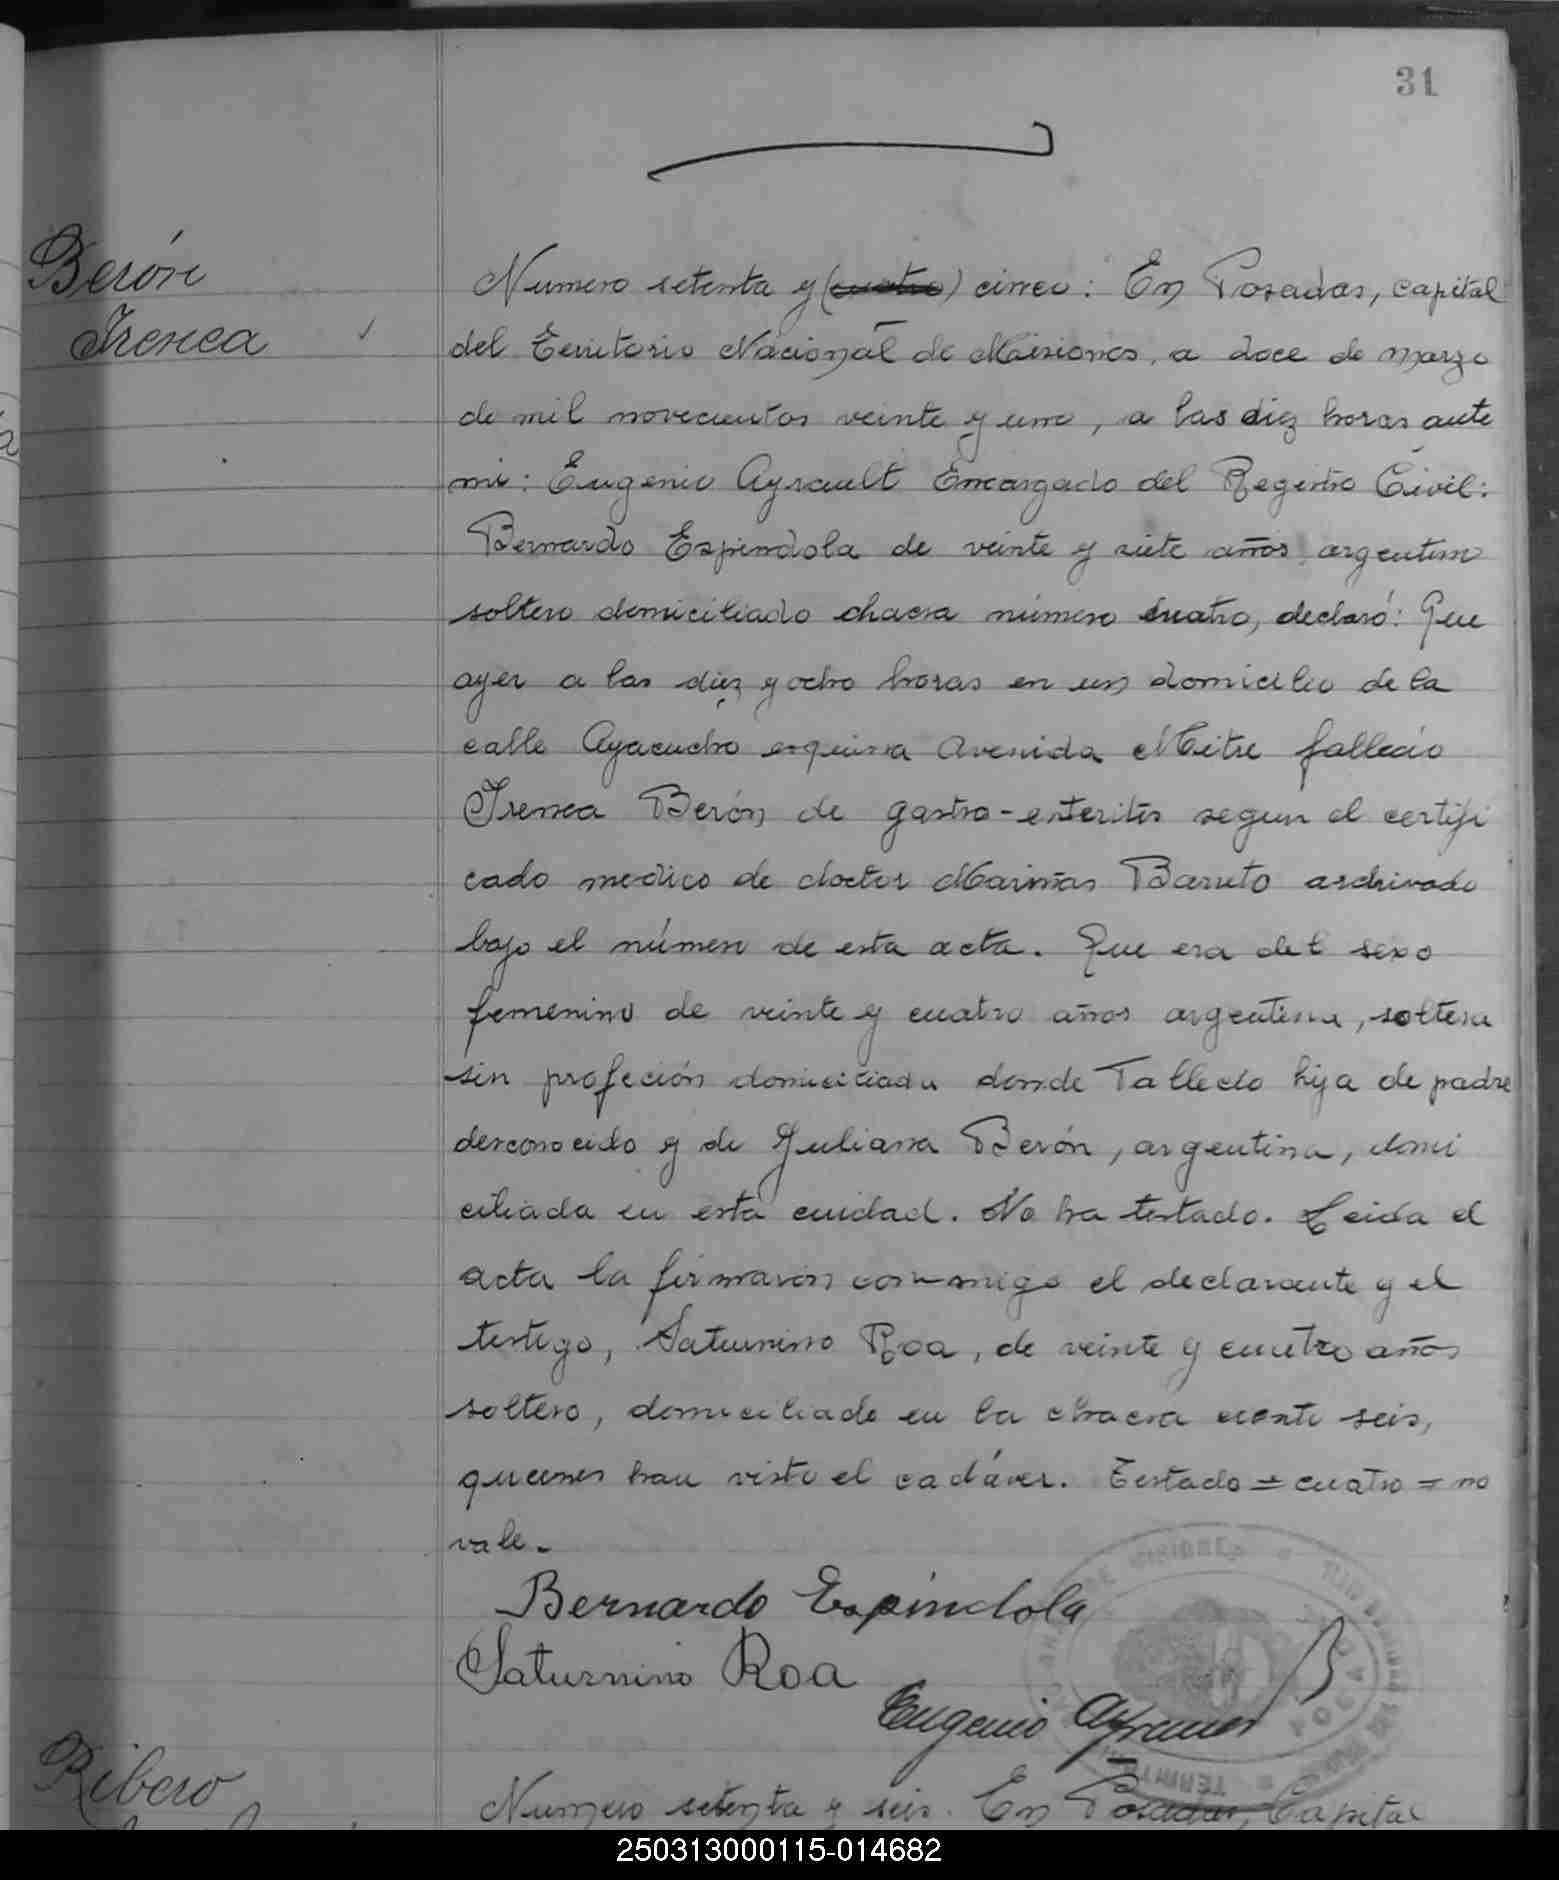 31
Berón
Irenea
Numero setenta y (cuatro) cinco: En Posadas, capital
del Territorio Nacional de Misiones, a doce de marzo
de mil novecientos veinte y uno, a las diez horas ante
mi: Eugenio Ayrault Encargado del Registro Civil:
Bernardo Espindola de veinte y siete años, argentino
soltero domiciliado chacra número cuatro, declaró: Que
ayer a las diez y ocho horas en un domicilio de la
calle Ayacucho esquina Avenida Mitre fallecio
Irenea Berón de gastro-enteritis segun el certifi
cado medico de doctor Mariñas Barreto archivado
bajo el número de esta acta. Que era del sexo
femenino de veinte y cuatro años argentina, soltera
sin profeción domiciliada donde fallecio hija de padre
desconocido y de Juliana Berón, argentina, domi
ciliada en esta cuidad. No ha testado. Leida el
acta la firmaron conmigo el declarante y el
testigo, Saturnino Roa, de veinte y cuatro años
soltero, domiciliado en la chacra ciento seis,
quienes han visto el cadáver. Testado = cuatro = no
vale.-
Bernardo Espíndola
Saturnino Roa
Eugenio Ayrault
Ribero
Numero setenta y seis. En Posadas, Capital
250313000115-014682